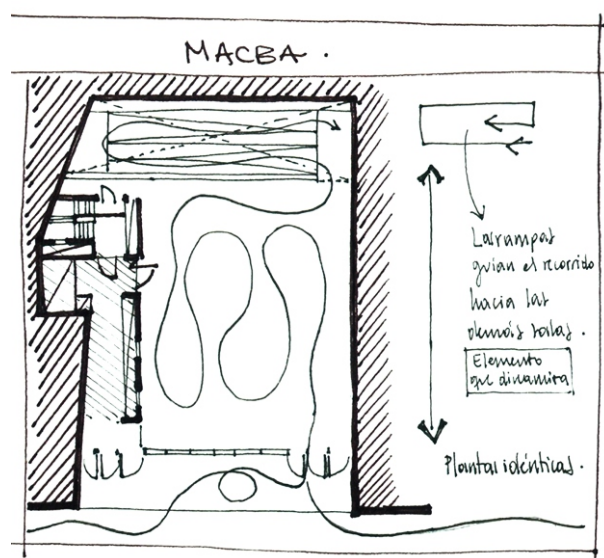 MACBA.
Las rampas
guían el recorrido
hacia las
demás salas.
Elemento
que dinamiza
Plantas idénticas.